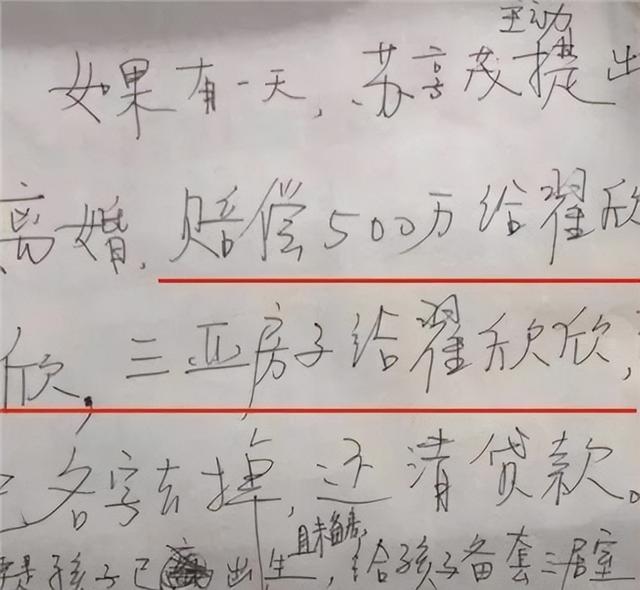 主动
如果有一天,苏享茂提出
离婚,赔偿500万给翟欣
欣,三亚房子给翟欣欣,
名字去掉,还清贷款。
且未备房,
孩子已出生,给孩子备套三居室